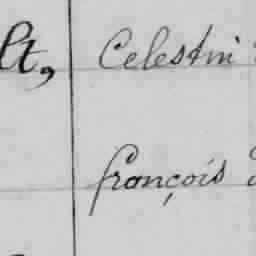 lt, Celestin
françois